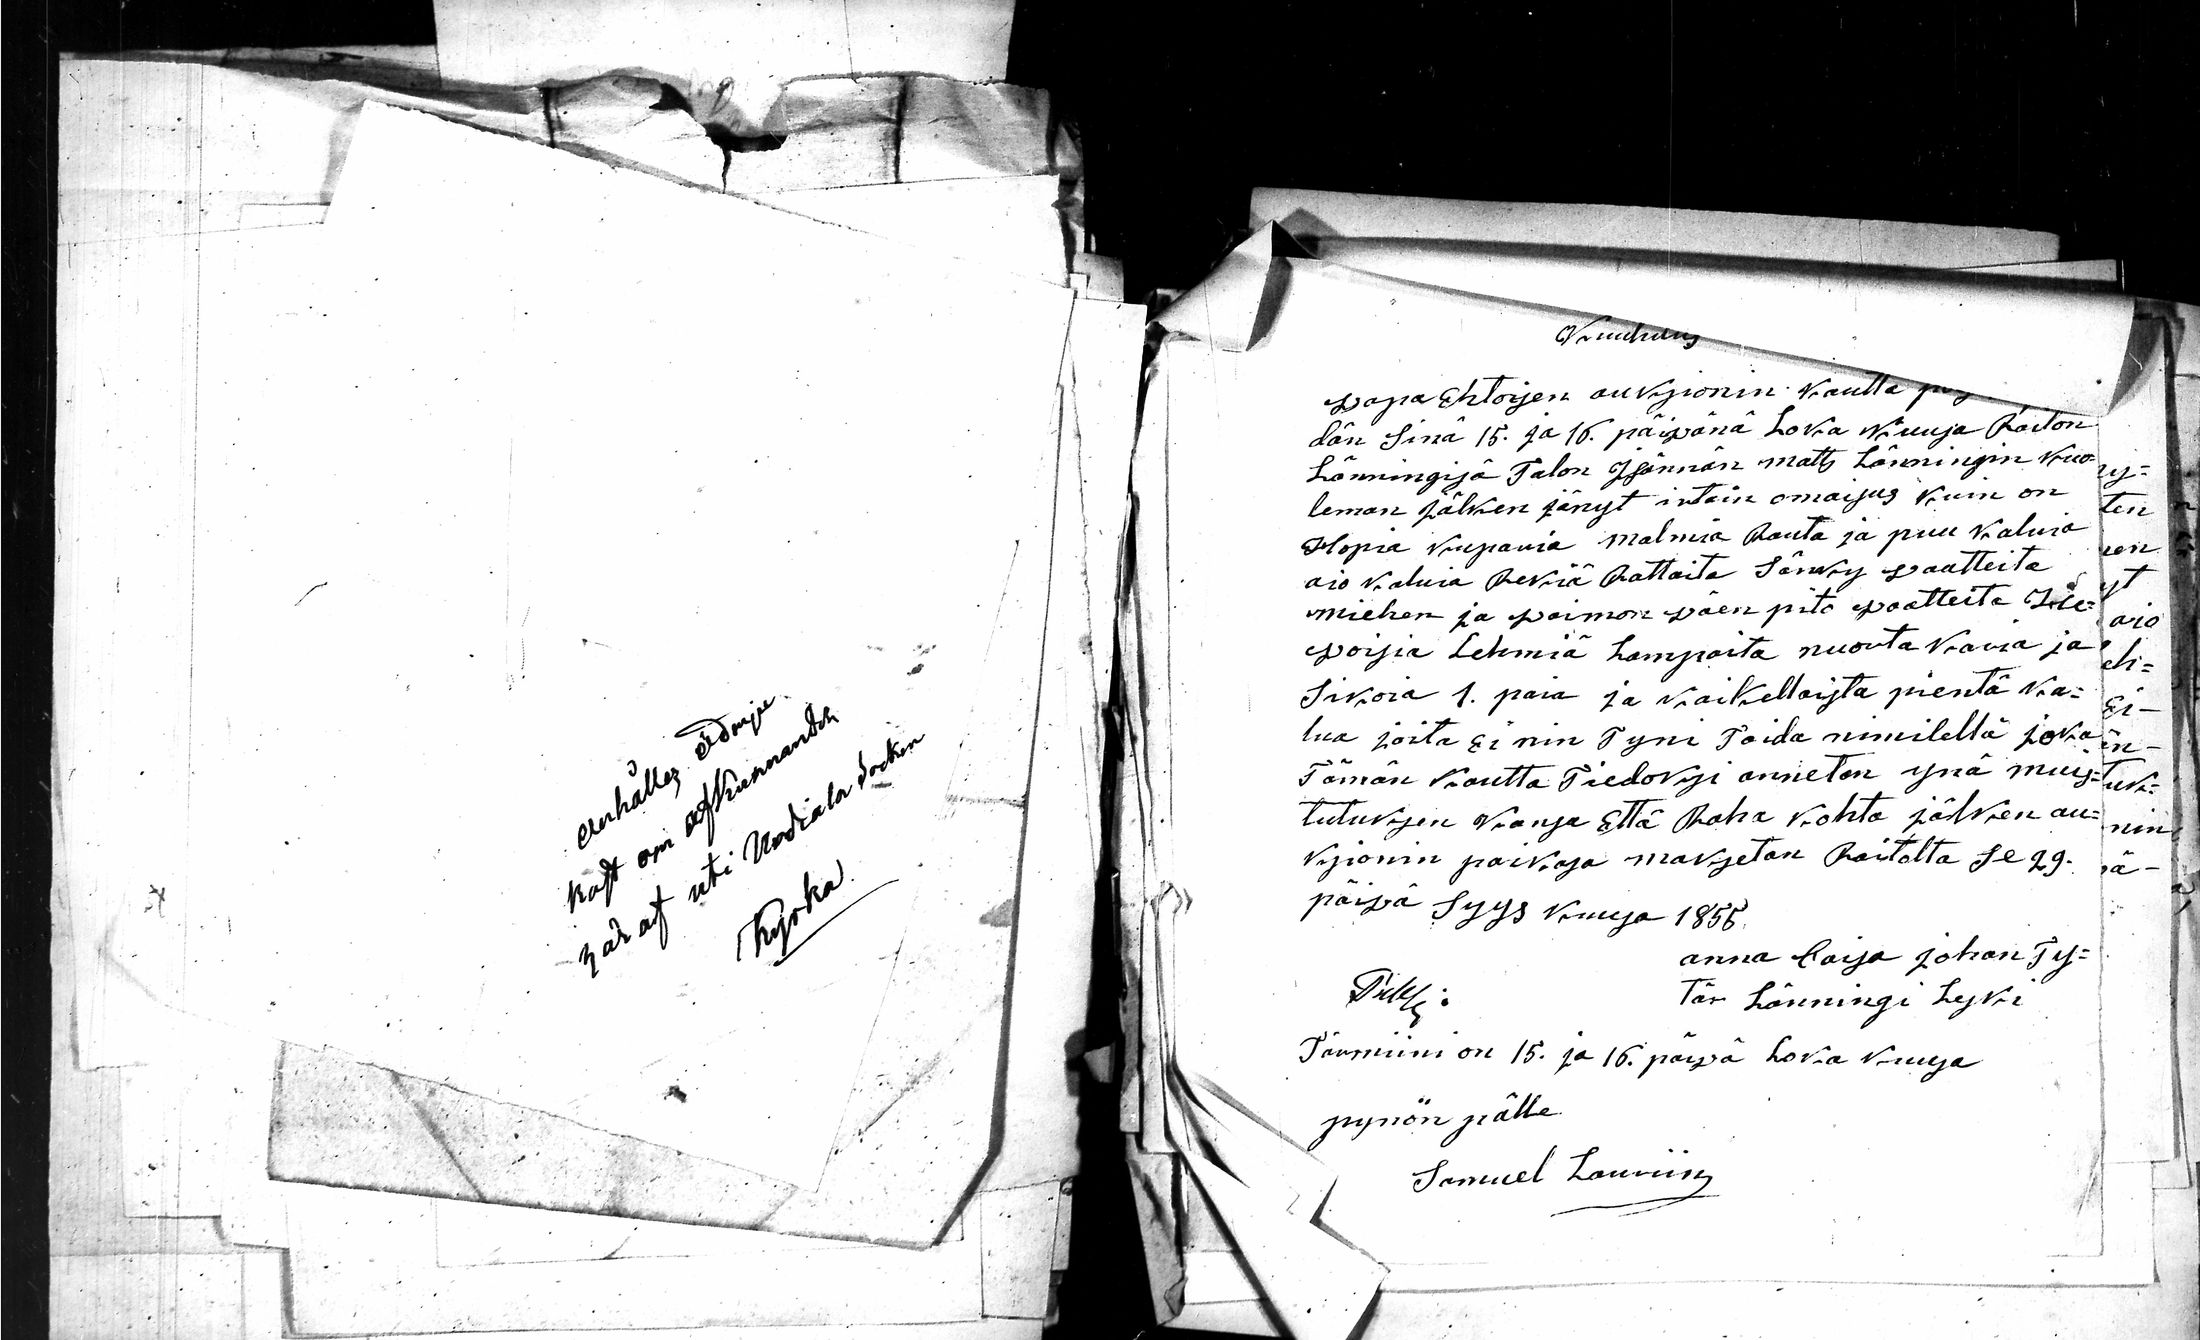 anhålles ödmju
kast om afkunnandeh
zar af uti Urdiala Socken
Kyrka.
Kuulutus
vapa Ehtoisen aukzionin kautta
dän Sinä 15. ja 16. päivänä Loka kuusa Raiton
Länningisä Talon Isännän matts Länningin kuo-
leman jälken jänyt irtain omaisus kuin on
Hopia kuparia malmia Rauta ja puu kaluia
aio kaluia Rekiä Rattaita Sänky vaatteita
miehen ja vaimon väen pito vaatteita
voisia Lehmiä Lampaita nuorta karia ja
Sikoia 1. paia ja kaikellaista pientä ka=
lua joita Ei nin Tyni Taida nimitellä joka
Tämän kautta Tiedoksi anneton ynä muis=
tutuksen kansa Että Raha kohta jälken au=
kzionin paikasa maksetan Raitolta Se 29.
päivä Syys kuusa 1855
anna Caisa johan Ty=
tär Länningi Leski
Tärmiini on 15. ja 16. päivä Loka kuusa
pynön pälle
Samuel Lauriin
ten
nen
yt
aio
eh=
Ei-
än-
tuk=
nin
ä-